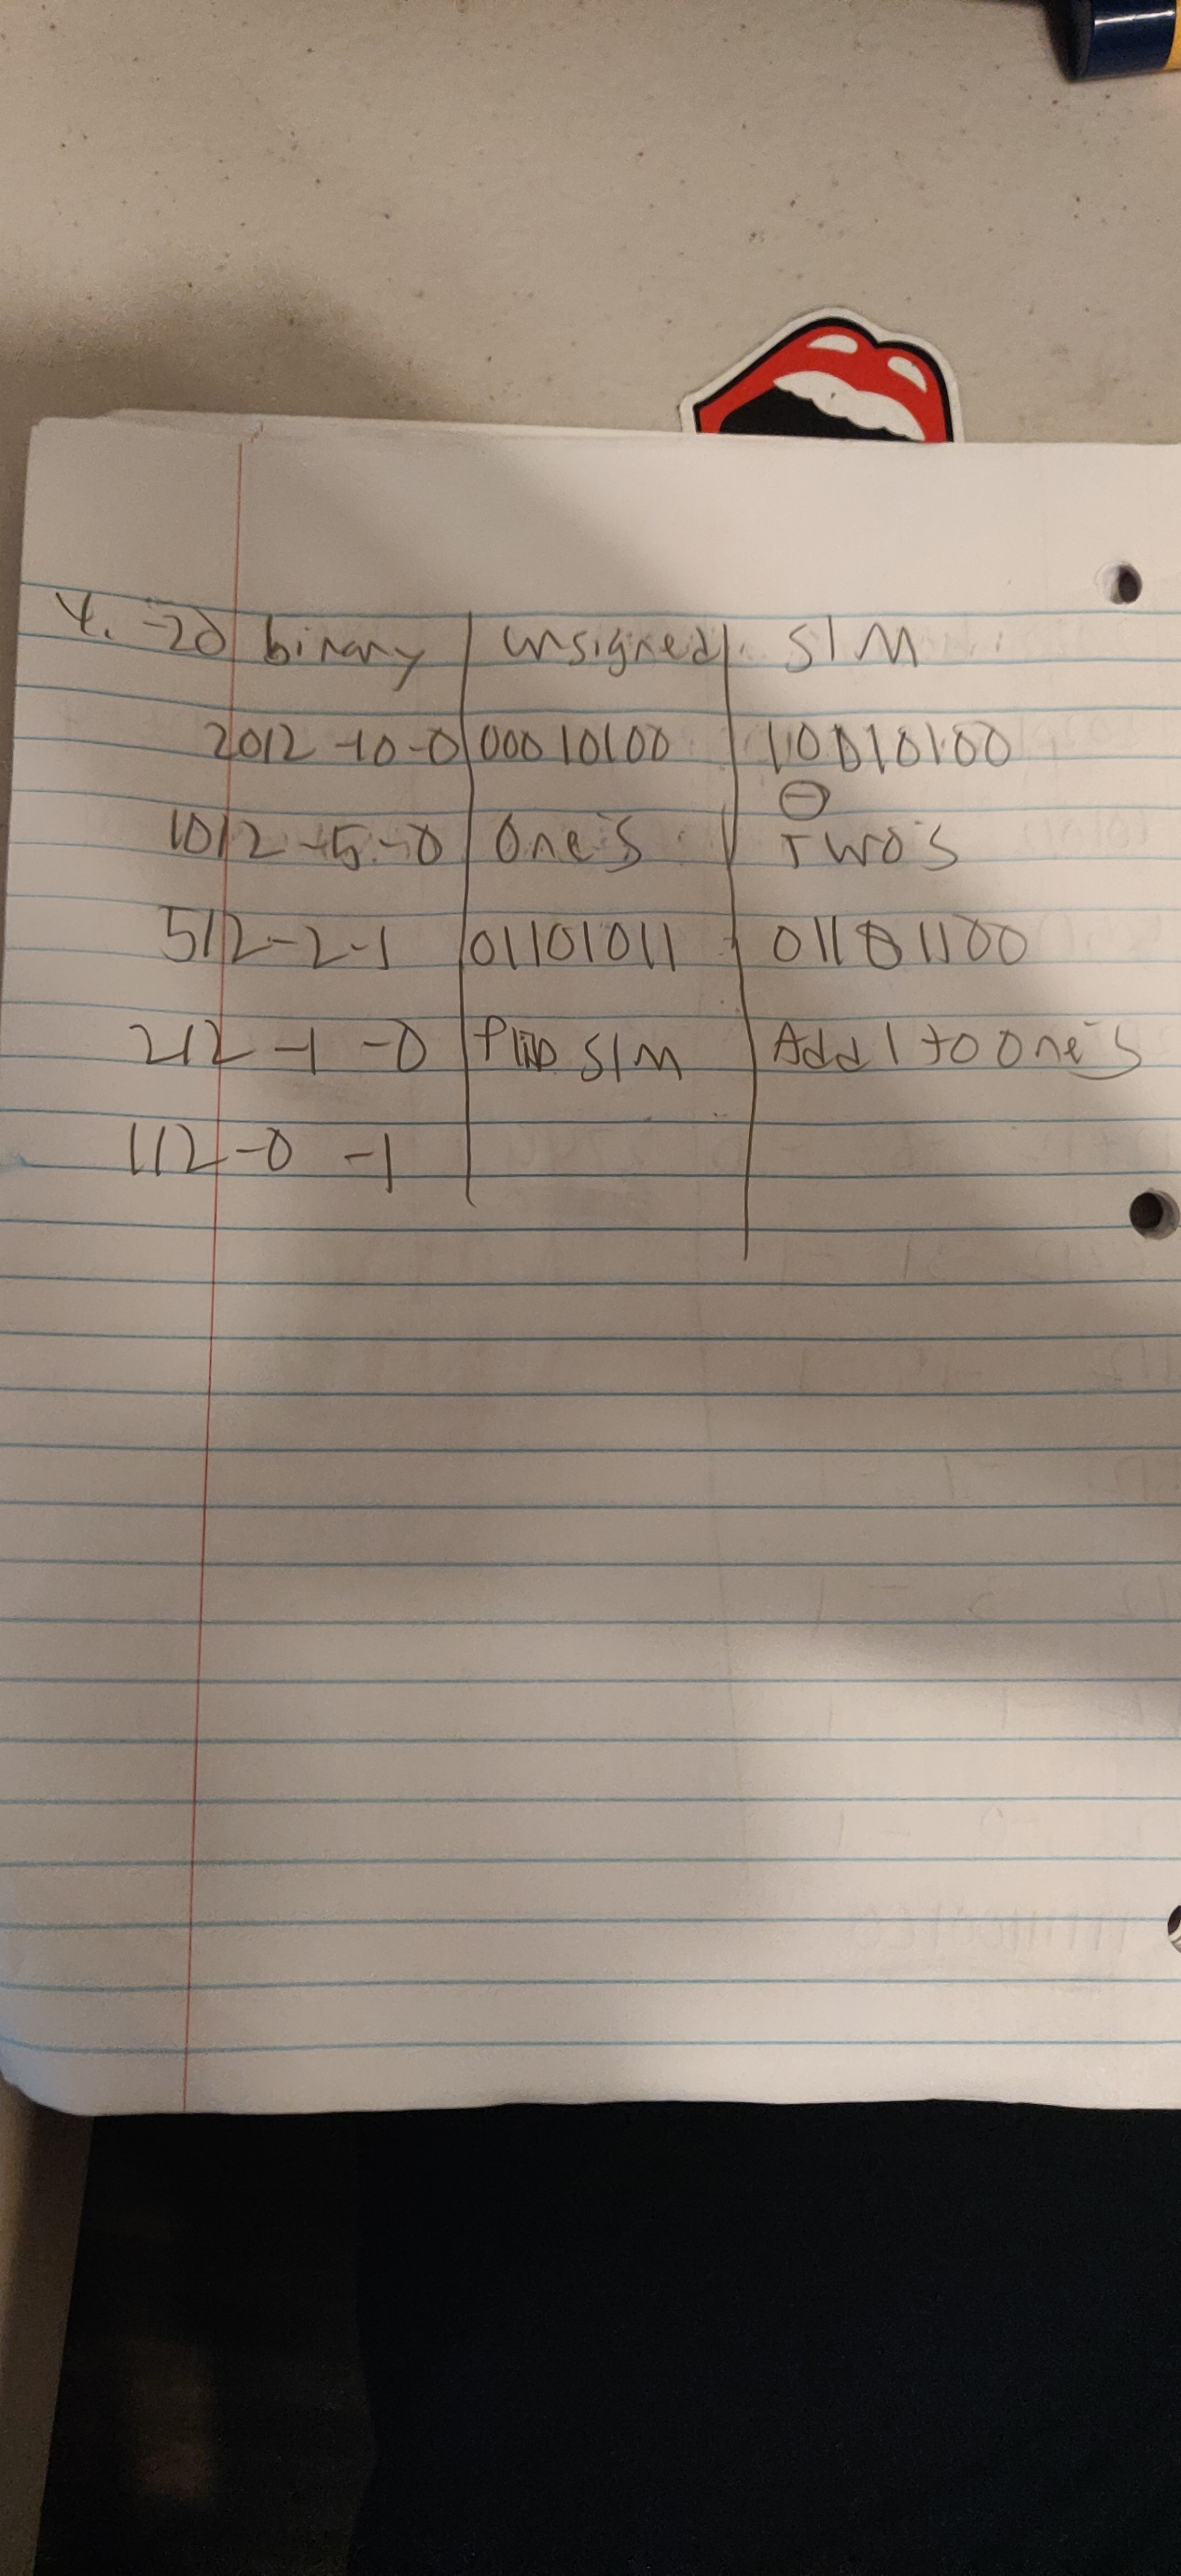 4. -20 binary | unsigned | S/M
20/2 -10 -0 | 00010100 | 10010100
⊖
10/2 -5 -0 | One's | Two's
5/2 -2 -1 | 01101011 | 01101100
2/2 -1 -0 | flip S/M | Add 1 to One's
1/2 -0 -1